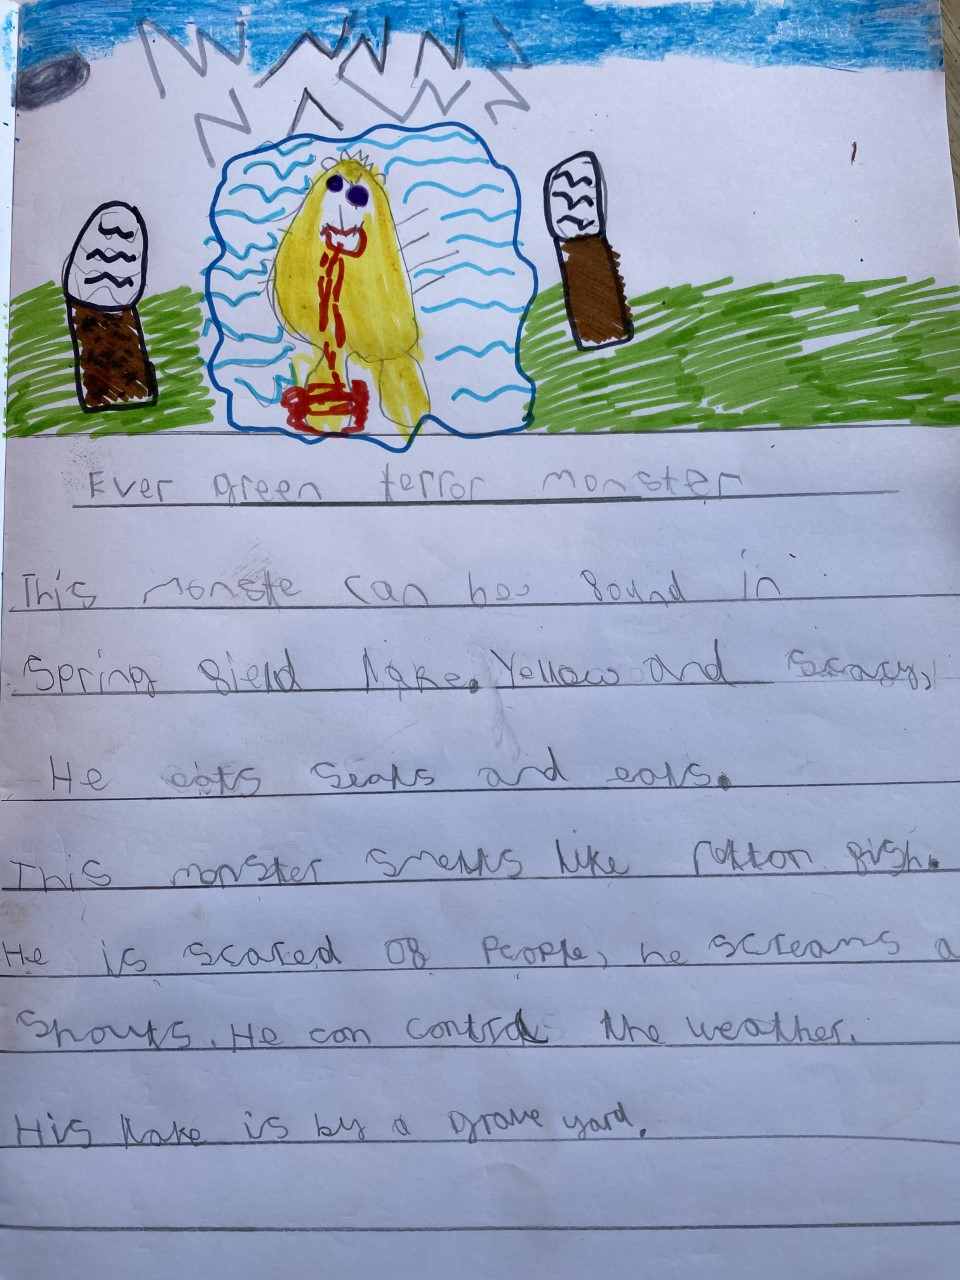 Ever green terror monster
This monste can be found in
Spring field lake. Yellow and scary,
He eats seals and eals.
This monster smells like rotton fish.
He is scared of people, he screams a
shouts. He can control the weather.
His lake is by a grave yard.